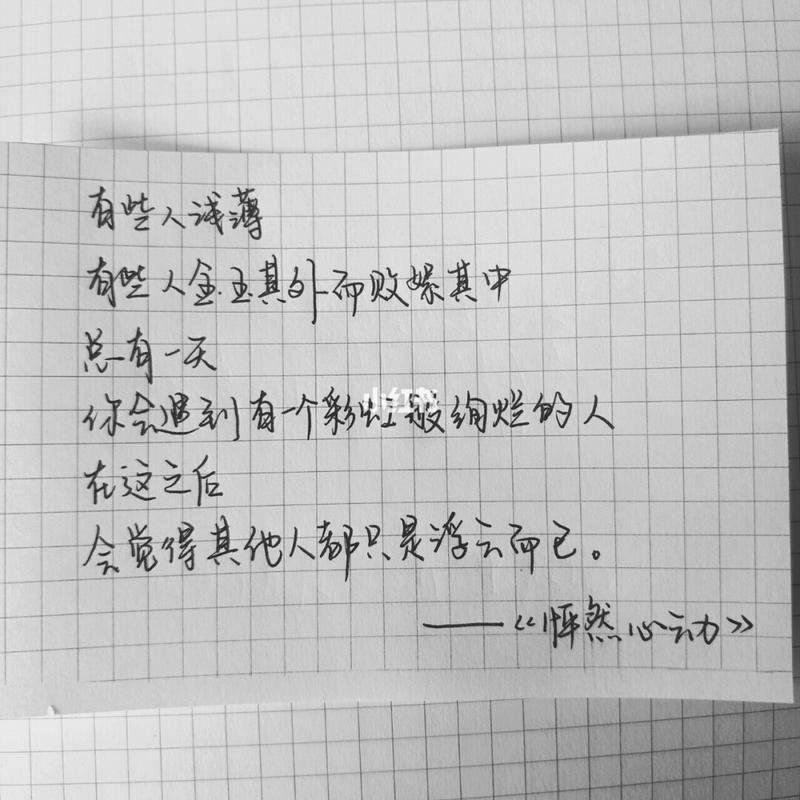 有些人浅薄
有些人金玉其外而败絮其中
总有一天
你会遇到有一个彩虹般绚烂的人
在这之后
会觉得其他人都只是浮云而已。
——《怦然心动》
小红书